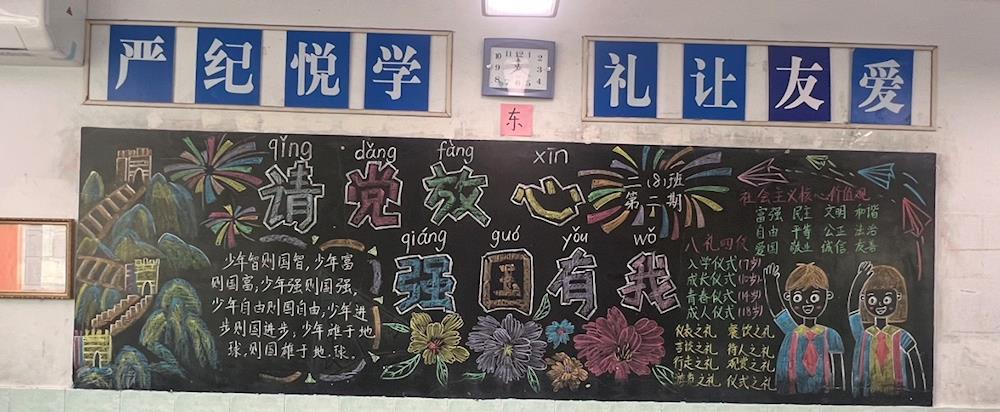 严纪悦学
礼让友爱
东
qǐng dǎng fàng xīn
请党放心
qiáng guó yǒu wǒ
强国有我
一(8)班
第二期
少年智则国智,少年富
则国富,少年强则国强,
少年自由则国自由,少年进
步则国进步,少年雄于地
球,则国雄于地球。
社会主义核心价值观
富强 民主 文明 和谐
自由 平等 公正 法治
爱国 敬业 诚信 友善
八礼四仪
入学仪式(7岁)
成长仪式(10岁)
青春仪式(14岁)
成人仪式(18岁)
仪表之礼 餐饮之礼
言谈之礼 待人之礼
行走之礼 观赏之礼
游览之礼 仪式之礼